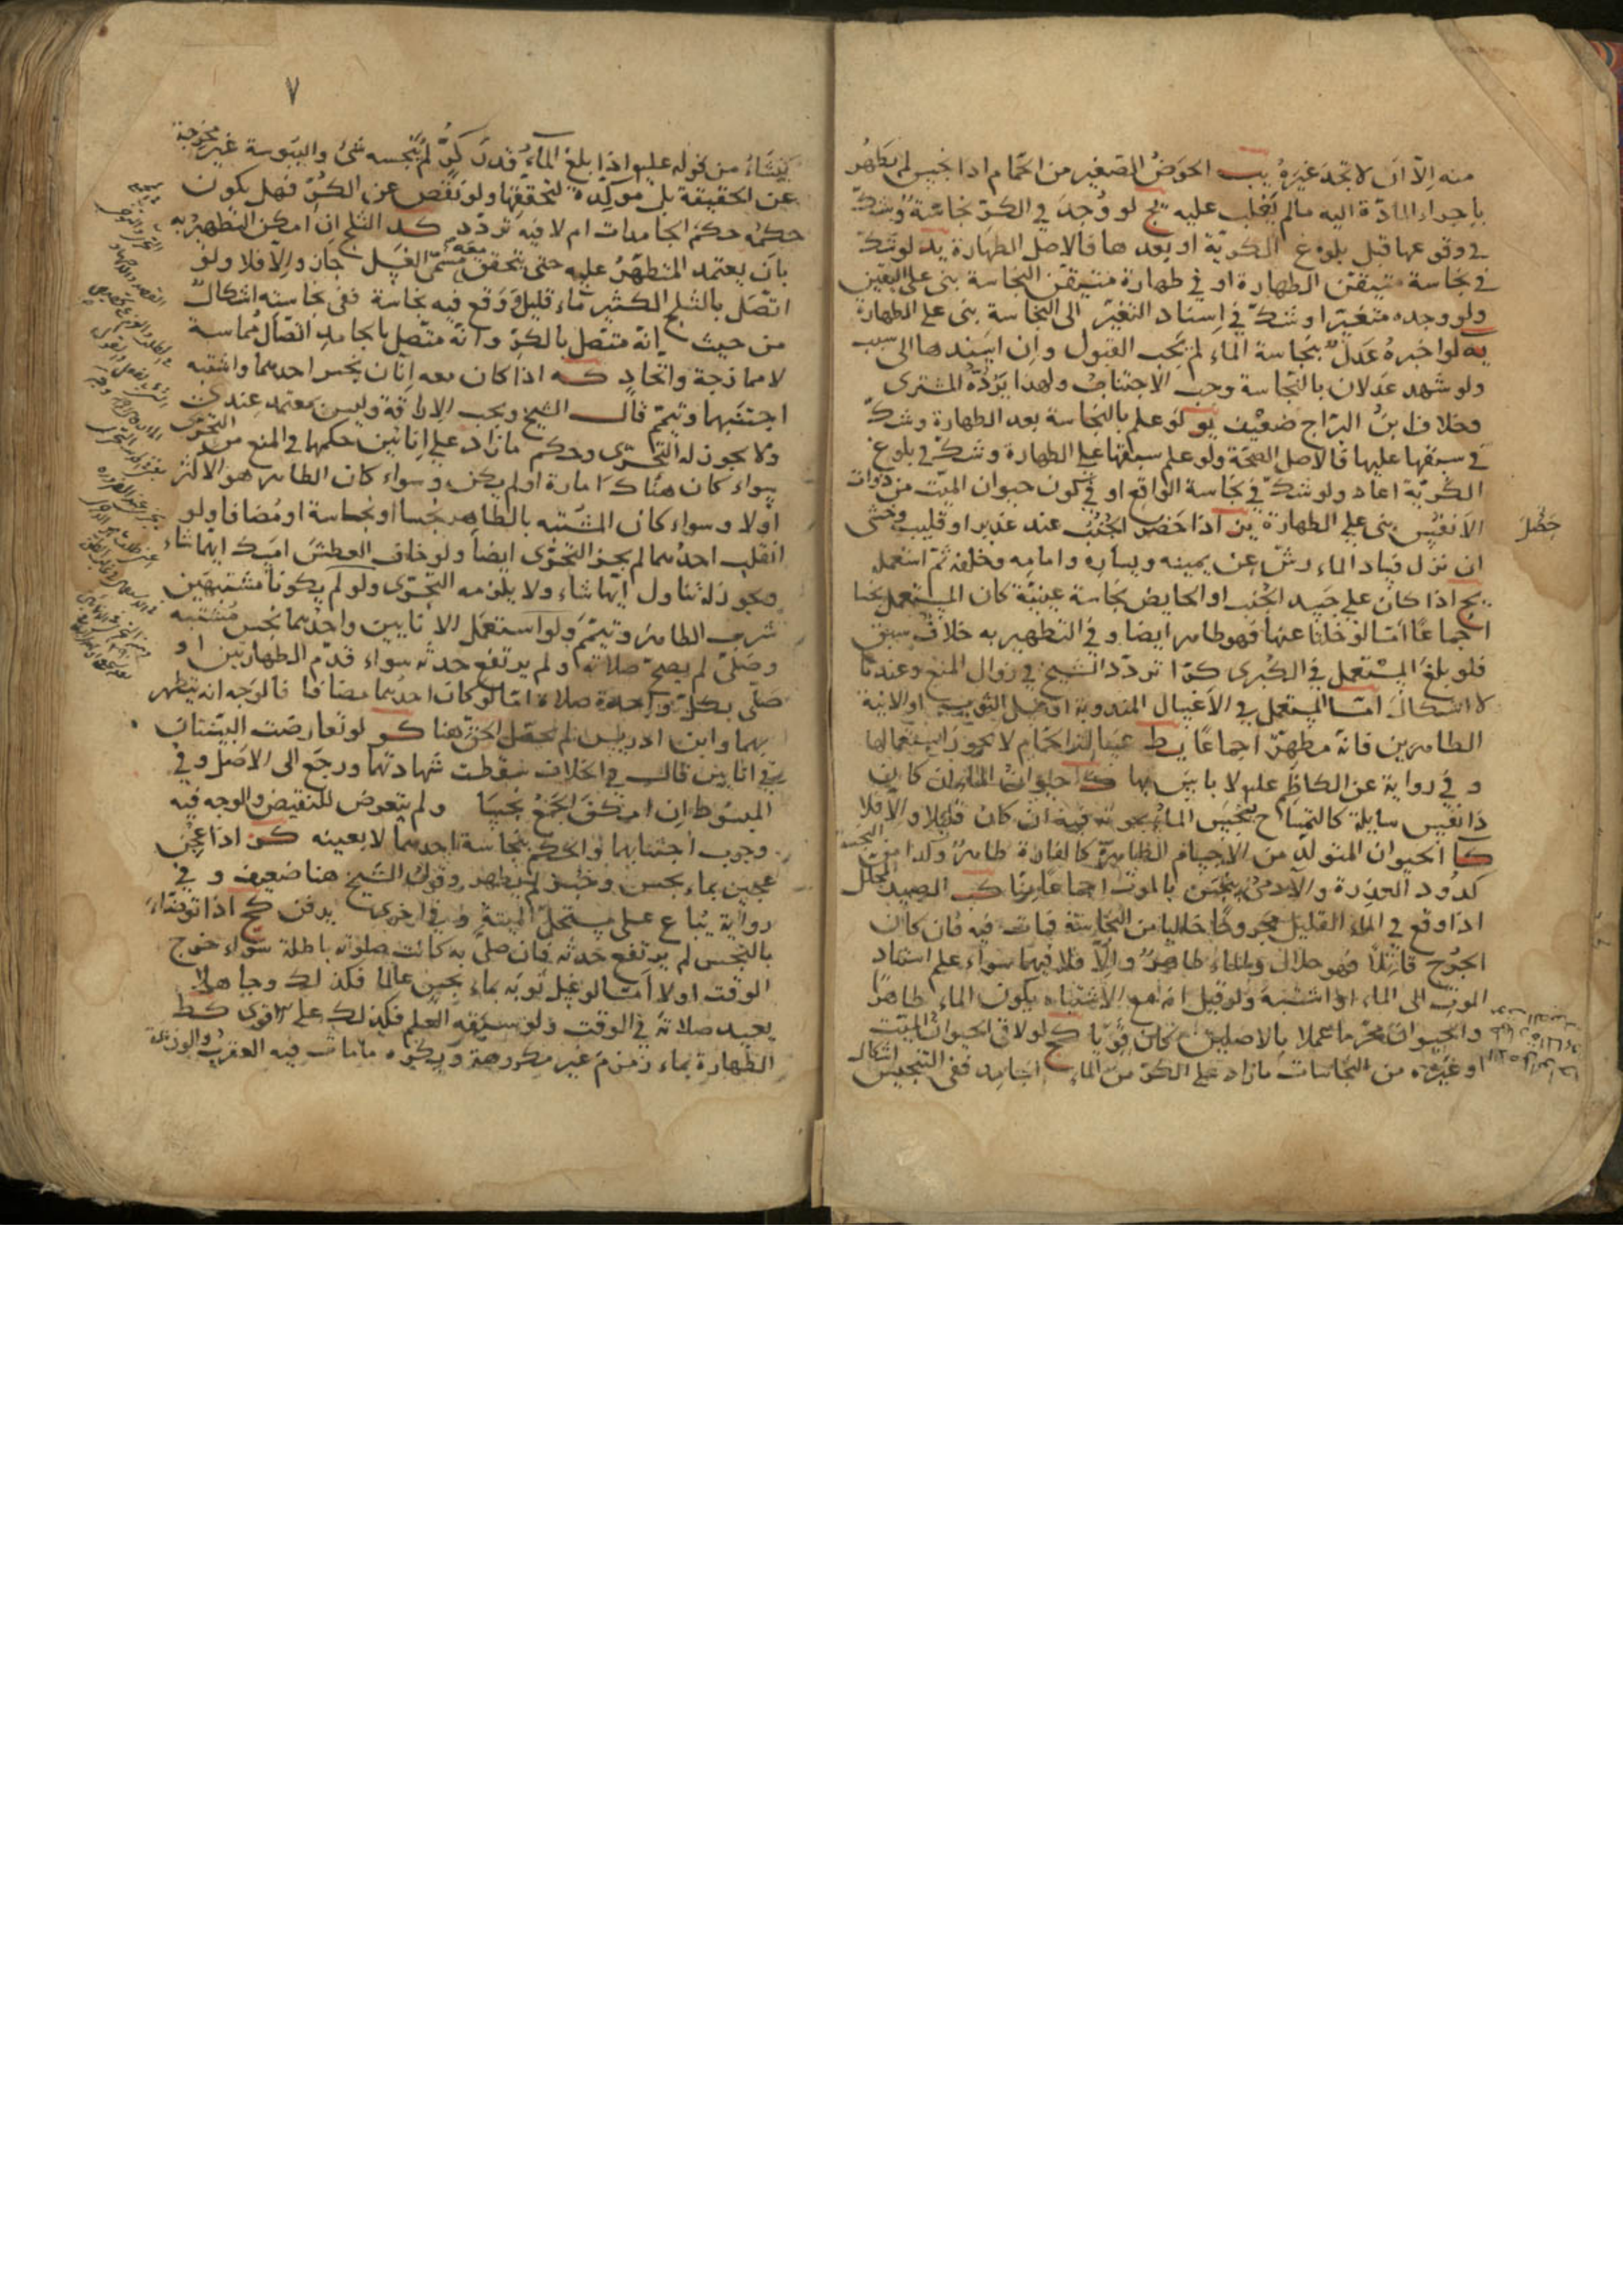 منه الّا ان لا تجد غيره يب الحوض الصغير من الحمّام اذا نجس لم يطهر
باجراء المادّة اليه مالم يغلب عليه يج لو وجد في الكرّ نجاسة وشكّ
في وقوعها قبل بلوغ الكرّيّة او بعدها فالاصل الطهارة يد لو شكّ
في نجاسة متيقّن الطهارة او في طهارة متيقّن النجاسة بنى على اليقين
ولو وجده متغيّرا وشكّ في اسناد التغيّر الى النجاسة بنى على الطهارة
يه لو اخبره عدل بنجاسة الماء لم يجب القبول وان اسندها الى سبب
ولو شهد عدلان بالنجاسة وجب الاجتناب ولهذا يردّه المشترى
وخلاف ابن البرّاج ضعيف يو لو علم بالنجاسة بعد الطهارة وشكّ
في سبقها عليها فالاصل الصحّة ولو علم سبقها على الطهارة وشكّ في بلوغ
الكرّيّة اعاد ولو شكّ في نجاسة الواقع او في كون حيوان الميّت من ذوات
الانفس بنى على الطهارة يز اذا حضر الجنب عند غدير او قليب وخشى
ان نزل فساد الماء رشّ عن يمينه ويساره وامامه وخلفه ثمّ استعمله
يح اذا كان على جسد الجنب او الحايض نجاسة عينيّة كان المستعمل نجسا
اجماعا امّا لو خلتا عنها فهو طاهر ايضا وفي التطهير به خلاف سبق
فلو بلغ المستعمل في الكبرى كرّا تردّد الشيخ في زوال المنع وعندنا
لا اشكال امّا المستعمل في الاغسال المندوبة او غسل الثوب او الانية
الطاهرين فانّه مطهّر اجماعا يط غسالة الحمّام لا يجوز استعمالها
وفي رواية عن الكاظم عليه لا باس بها ك حيوان الماء ان كان
ذا نفس سايلة كالتمساح ينجس الماء بموته فيه ان كان قليلا والّا فلا
كا الحيوان المتولّد من الاجسام الطاهرة كالفارة طاهر وكذا من النجسة
كدود العذرة والآدمى ينجس بالموت اجماعا منّا كب الصيد المحلّل
اذا وقع في الماء القليل مجروحا خاليا من النجاسة فمات فيه فان كان
الجرح قاتلا فهو حلال والماء طاهر والّا فلا فيهما سواء علم استناد
الموت الى الماء او اشتبه ولو قيل انه مع الاشتباه يكون الماء طاهرا
والحيوان محرّما عملا بالاصلين كان قويّا كج لو لاقى الحيوان الميّت
او غيره من النجاسات ما زاد على الكرّ من الماء الجامد ففى التنجيس اشكال
٧
ينشاء من قوله عليه اذا بلغ الماء قدر كرّ لم ينجسه شئ واليبوسة غير مخرجة
عن الحقيقة بل مؤكّدة لتحقّقها ولو نقص عن الكرّ فهل يكون
حكمه حكم الجامدات ام لا فيه تردّد كد الثلج ان امكن التطهير به
بان يعتمد المتطهّر عليه حتى يتحقق معه مسمّى الغسل جاز والّا فلا ولو
اتّصل بالثلج الكثير ماء قليل ووقع فيه نجاسة ففى نجاسته اشكال
من حيث انّه متّصل بالكرّ وانّه متّصل بالجامد اتصال مماسة
لا ممازجة واتحاد كه اذا كان معه اناان نجس احدهما واشتبه
اجتنبهما وتيمّم قال الشيخ ويجب الاراقة وليس بمعتمد عندى
ولا يجوز له التحرّى وحكم ما زاد على انائين حكمهما في المنع من التحرّى
سواء كان هناك امارة او لم يكن وسواء كان الطاهر هو الاكثر
اولا وسواء كان المشتبه بالطاهر نجسا او نجاسة او مضافا ولو
انقلب احدهما لم يجز التحرّى ايضا ولو خاف العطش امسك ايّهما شاء
ويجوز له تناول ايّها شاء ولا يلزمه التحرّى ولو لم يكونا مشتبهين
شرب الطاهر وتيمّم ولو استعمل الانايين واحدهما نجس مشتبه
وصلّى لم يصحّ صلاته ولم يرتفع حدثه سواء قدّم الطهارتين او
صلّى بكلّ واحدة صلاة امّا لو كان احدهما مضافا فالوجه انه يتطهر
بهما وابن ادريس لم يحصّل الحقّ هنا كو لو تعارضت البيّنتان
في انايين قال في الخلاف سقطت شهادتهما ورجع الى الاصل وفي
المبسوط ان امكن الجمع نجسا ولم يتعرض للنقيض والوجه فيه
وجوب اجتنابهما والحكم بنجاسة احدهما لا بعينه كز اذا عجن
عجين بماء نجس وخبز لم يطهر وقول الشيخ هنا ضعيف وفي
رواية يباع على مستحلّ الميتة وفي اخرى يدفن كح اذا توضّاء
بالنجس لم يرتفع حدثه فان صلّى به كانت صلوته باطلة سواء خرج
الوقت اولا امّا لو غسل ثوبه بماء نجس عالما فكذلك وجاهلا
يعيد صلاته في الوقت ولو سبقه العلم فكذلك على الاقوى كط
الطهارة بماء زمزم غير مكروهة ويكره ما مات فيه العقرب والوزغة